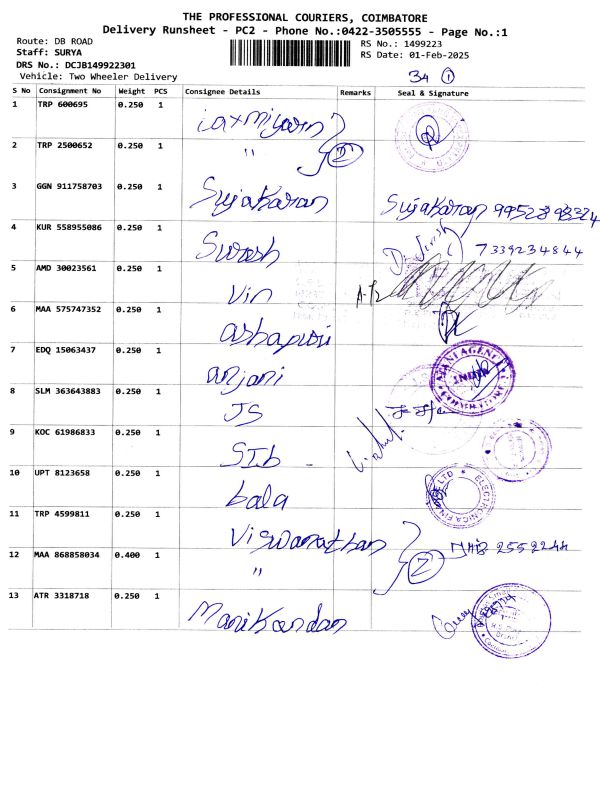 THE PROFESSIONAL COURIERS, COIMBATORE
Delivery Runsheet - PC2 - Phone No.:0422-3505555 - Page No.:1
Route: DB ROAD
Staff: SURYA
DRS No.: DCJB149922301
Vehicle: Two Wheeler Delivery
RS No.: 1499223
RS Date: 01-Feb-2025
34 1
S No Consignment No Weight PCS Consignee Details Remarks Seal & Signature
1 TRP 600695 0.250 1
2 TRP 2500652 0.250 1 " 2
3 GGN 911758703 0.250 1 Sujakaran Sujakaran
4 KUR 558955086 0.250 1 7339234844
5 AMD 30023561 0.250 1 Vin
6 MAA 575747352 0.250 1 ashapuri
7 EDQ 15063437 0.250 1 anjani
8 SLM 363643883 0.250 1 JS
9 KOC 61986833 0.250 1
10 UPT 8123658 0.250 1 bala
11 TRP 4599811 0.250 1 Viswanathan
12 MAA 868858034 0.400 1 " 2
13 ATR 3318718 0.250 1 Manikandan